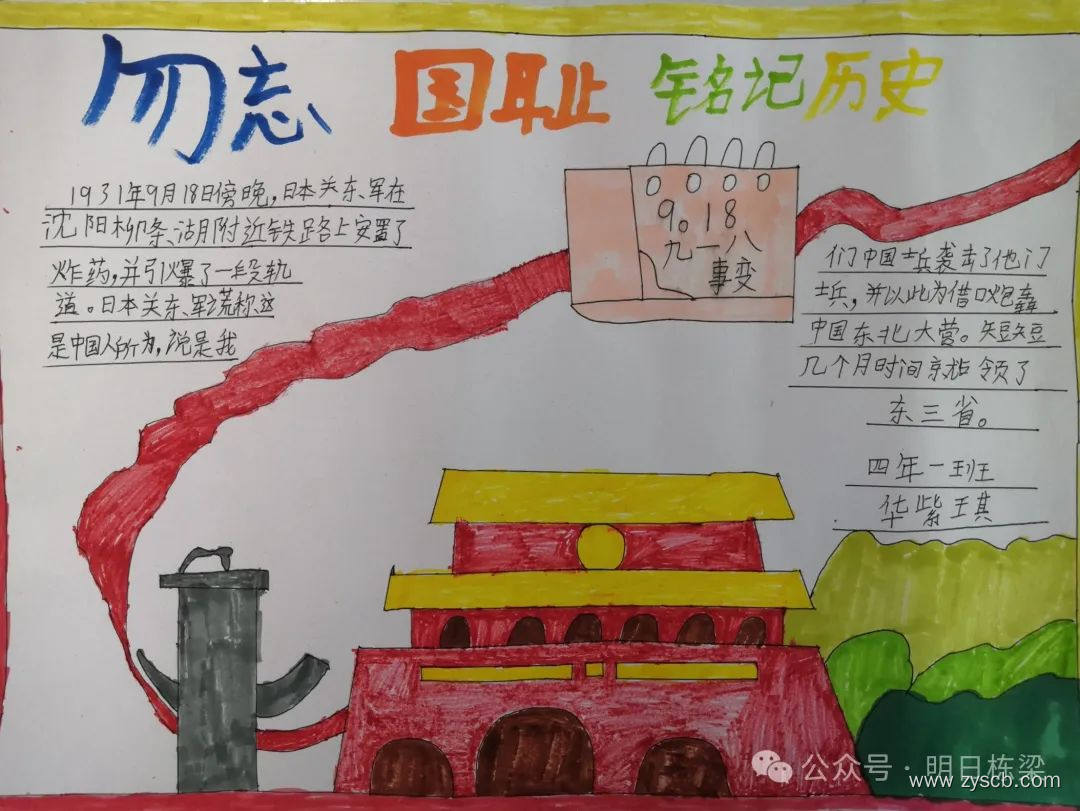 勿忘 国耻 铭记历史
1931年9月18日傍晚,日本关东军在
沈阳柳条湖附近铁路上安置了
炸药,并引爆了一段轨
道。日本关东军谎称这
是中国人所为,说是我
9。18
九一八
事变
们中国士兵袭击了他们
士兵,并以此为借口炮轰
中国东北大营。短短
几个月时间就占领了
东三省。
四年一班
华紫琪
公众号·明日栋梁
www.zyscb.com